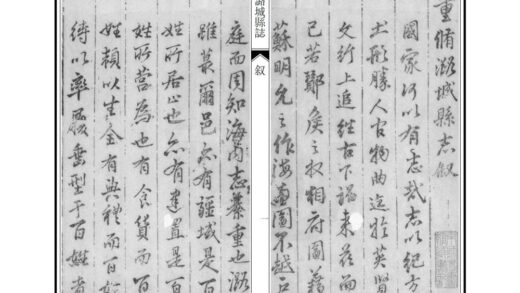 重脩潞城縣志叙
國家何以有志哉志以紀方
土形勝人官物曲迄於英賢
文行上追往古下詔来茲而
已若鄼侯之収相府圖籍
蘇明允之作海圖不越戶
潞城縣誌
叙
庭而周知海内志綦重也潞
雖蕞爾邑亦有疆域是百
姓所居止也亦有建置是百
姓所营為也有食貨而百
姓頼以生全有典禮而百姓
以率服垂型于百姓者